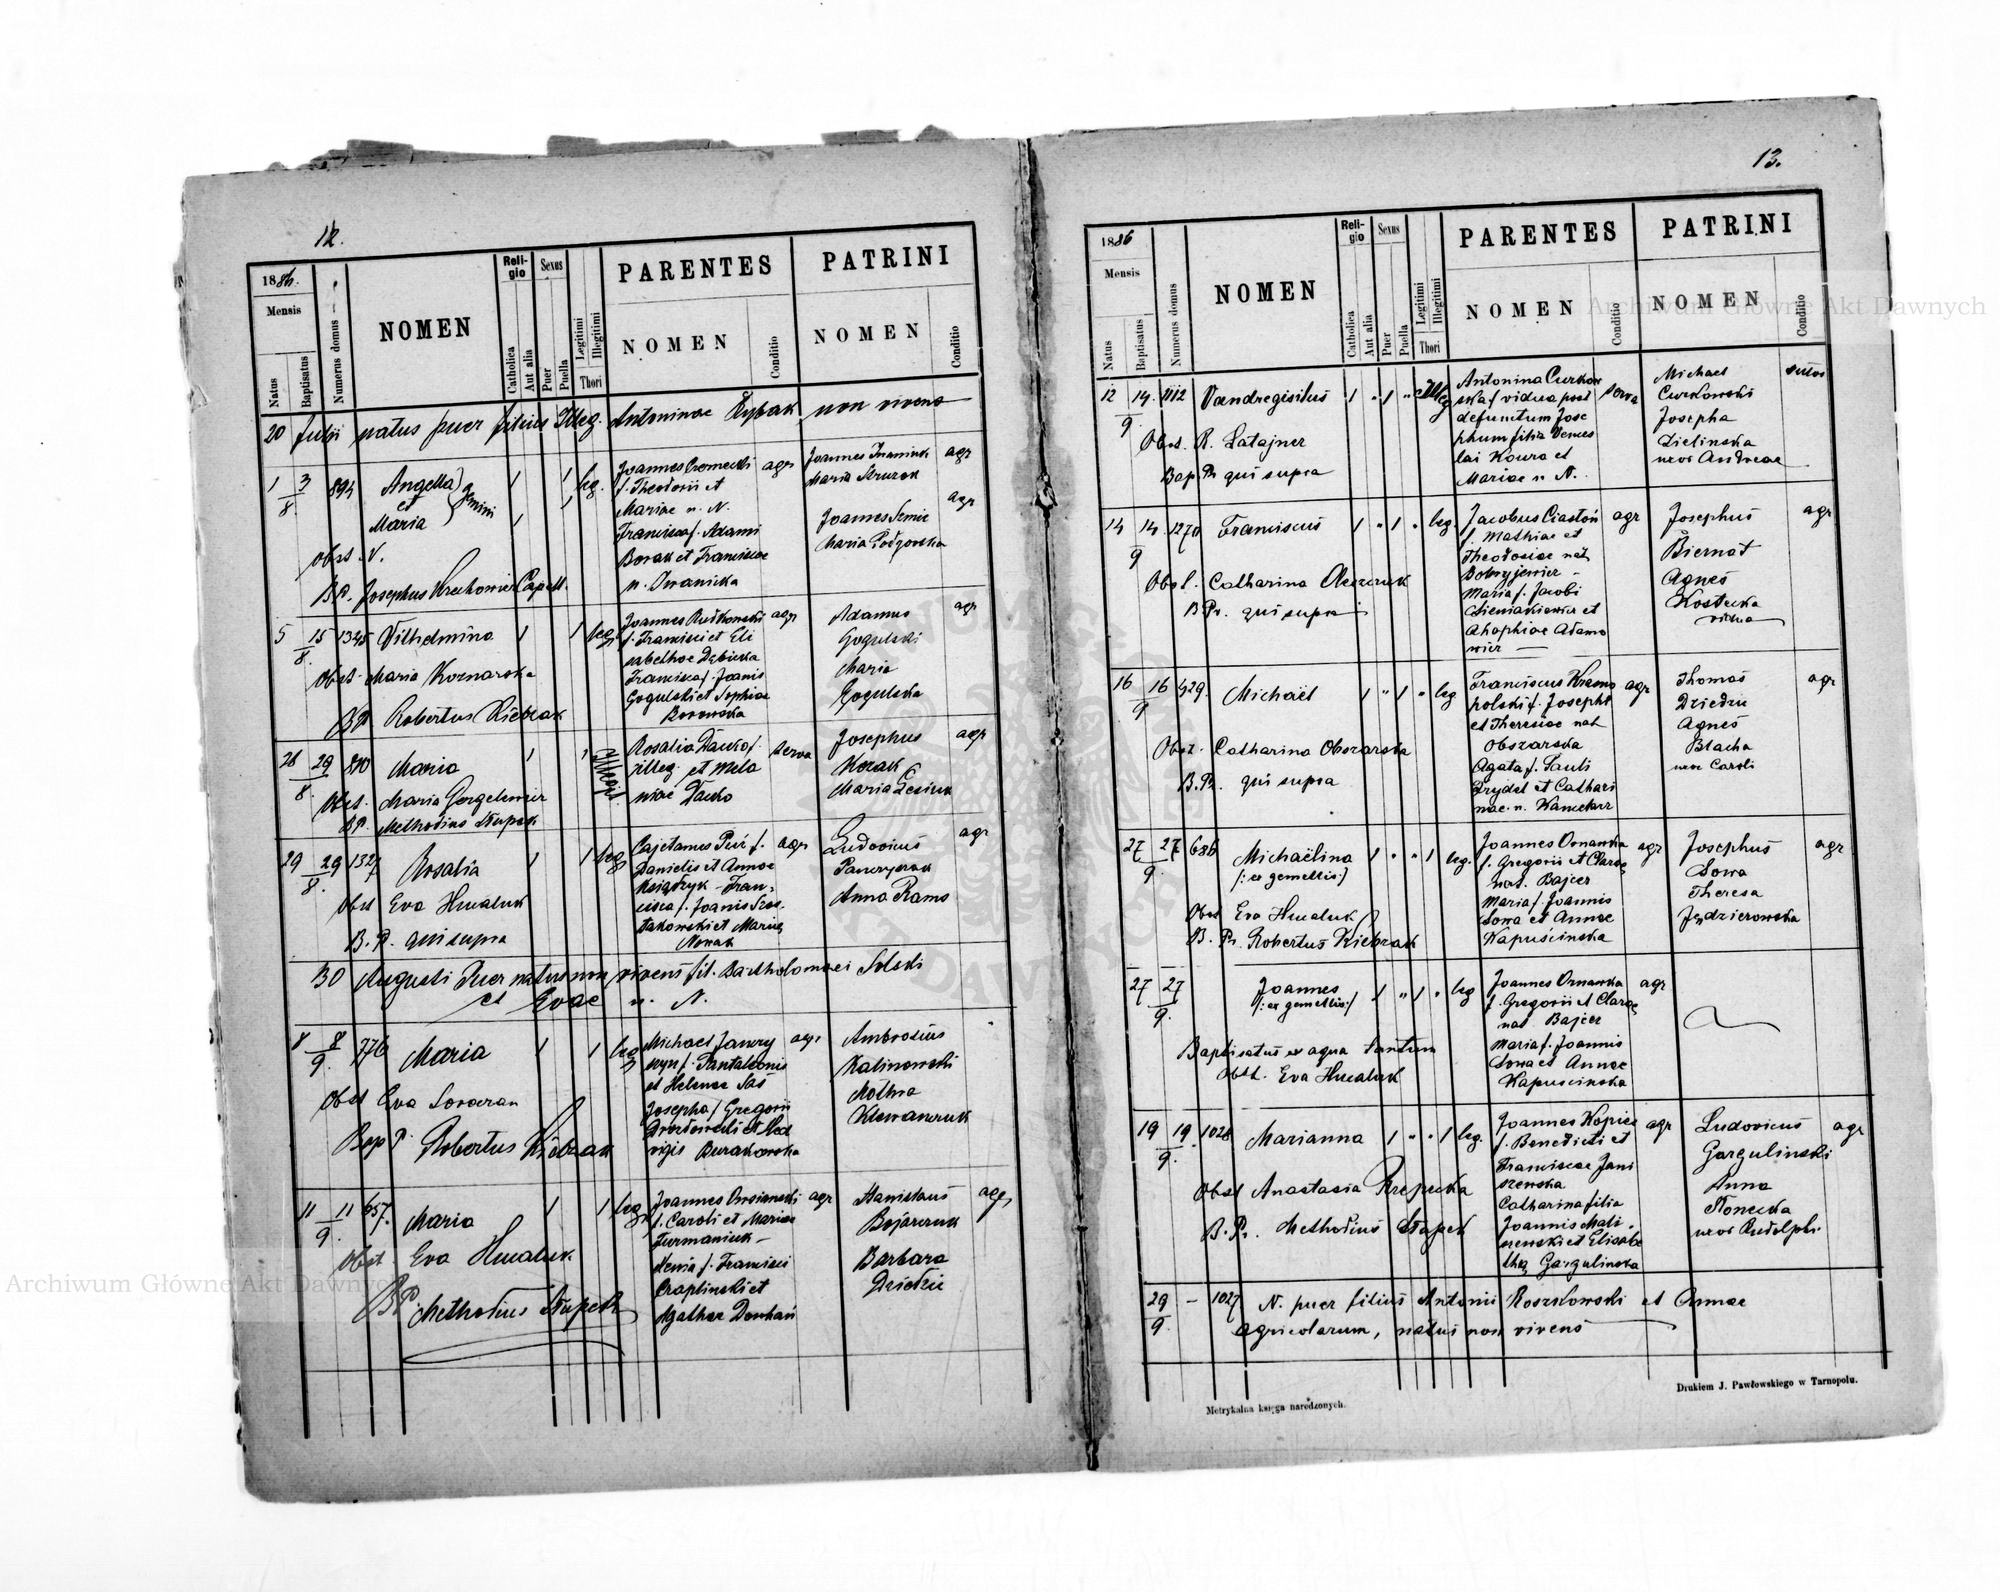 12.
1886.
Mensis
Natus
Baptisatus
Numerus domus
NOMEN
Reli-
gio
Catholica
Aut alia
Sexus
Puer
Puella
Legitimi
Illegitimi
Thori
PARENTES
NOMEN
Conditio
PATRINI
NOMEN
Conditio
20 Julji natus puer filius Illeg. Antoninae Rybak non vivens
1 3/8 894 Angella et Maria gemini 1 1 1 1 leg.
Joannes agr
f. Theodorii et
Mariae n. N.
Francisca f. Adami
Borak et Franciscae
n. Iwanicka
Joannes agr
Maria
Joannes agr
Maria Podgorska
Obst. N.
B.P. Josephus Capell.
5 15/8 1345 Vilhelmina 1 1 leg
Joannes Rutkowski agr
f. Francisci et Eli
sabethae Dębicka
Francisca f. Joanis
Gogulski et Sophiae
Borowska
Adamus agr
Gogulski
Maria
Gogulska
Obst. Maria Koznarska
B.P. Robertus Kiebzak
28 29/8 810 Maria 1 1 Illegit.
Rosalia f. serva
illeg. et Mela
niae
Josephus agr
Kozak
Maria
Obst. Maria
B.P. Methodius Słupek
29 29/8 1327 Rosalia 1 1 leg
Cajetanus f. agr
Danielis et Annae
Książżyk - Fran-
cisca f. Joanis
et Mariae
Nowak
Ludovicus agr
Anna Rams
Obst Eva Hucaluk
B.P. qui supra
30 Augusti Puer natus non vivens fil. Bartholomaei Solski
et Evae n. N.
8 8/9 776 Maria 1 1 leg
Michael agr
f. Pantaleonis
et Helenae Saś
Josepha f. Gregorii
et Hed
vigis Burakowska
Ambrosius
Kalinowski
Obst Eva
Bap P. Robertus Kiebzak
11 11/9 657. Maria 1 1 leg
Joannes agr
f. Caroli et Mariae
Furmaniuk -
Xenia f. Francisci
Czaplinski et
Agathae
Stanislaus agr
Bojarczuk
Barbara
Dziedzic
Obst. Eva Hucaluk
B.P. Methodius Słupek
13.
1886
Mensis
Natus
Baptisatus
Numerus domus
NOMEN
Reli-
gio
Catholica
Aut alia
Sexus
Puer
Puella
Legitimi
Illegitimi
Thori
PARENTES
NOMEN
Conditio
PATRINI
NOMEN
Conditio
12 14./9 1112 Vandregisilus 1 " 1 " Illeg
Antonina Curkow serva
ska f vidua post
defunctum Jose
phum filia Vences
lai Koura et
Mariae n N.
Michael sutor
Curkowski
Josepha
Zielinska
uxor Andreae
Obst. R. Latajner
Bap. Pr. qui supra
14 14/9 1270 Franciscus 1 " 1 " leg.
Jacobus Ciastoń agr
f. Mathiae et
Theodosiae nat
Maria f. Jacobi
et
Adamo
wicz
Josephus agr
Biernat
Agnes
Kostecka
vidua
Obst. Catharina
B Pr. qui supra
16 16/9 429. Michaël 1 " 1 " leg
Franciscus Krasno agr
polski f. Josephi
et Theresiae nat
Obszarska
Agata f. Pauli
et Cathari
nae n.
Thomas agr
Dziedzic
Agnes
Blacha
uxor Caroli
Obst. Catharina Obszarska
B. Pr. qui supra
27 27/9 686 Michaëlina 1 " " 1 leg.
/: ex gemellis :/
Joannes Ornawka agr
f. Gregorii et Clarae
nat. Bajcer
Maria f. Joannis
Sowa et Annae
Kapuścinska
Josephus agr
Sowa
Theresa
Jędzierowska
Obst Eva Hucaluk
B. Pr. Robertus Kiebzak
27 27/9. Joannes 1 " 1 " leg
/: ex gemellis :/
Joannes Ornawka agr
f. Gregorii et Clarae
nat Bajcer
Maria f. Joannis
Sowa et Annae
Kapuscinska
Baptisatus ex aqua tantum
Obst. Eva Hucaluk
19 19./9. 1028 Marianna 1 " " 1 leg.
Joannes Kopiec agr
f. Benedicti et
Franciscae Jani
szewska
Catharina filia
Joannis Mali-
nowski et Elisabe
thae Gargulinska
Ludovicus agr
Gargulinski
Anna
uxor Rudolphi
Obst Anastasia Rzepecka
B. Pr. Methodius Słupek
29/9. - 1027 N. puer filius Antonii Roszkowski et Annae
agricolarum, natus non vivens
Drukiem J. Pawłowskiego w Tarnopolu.
Metrykalna księga narodzonych.
Archiwum Główne Akt Dawnych
Archiwum Główne Akt Dawnych